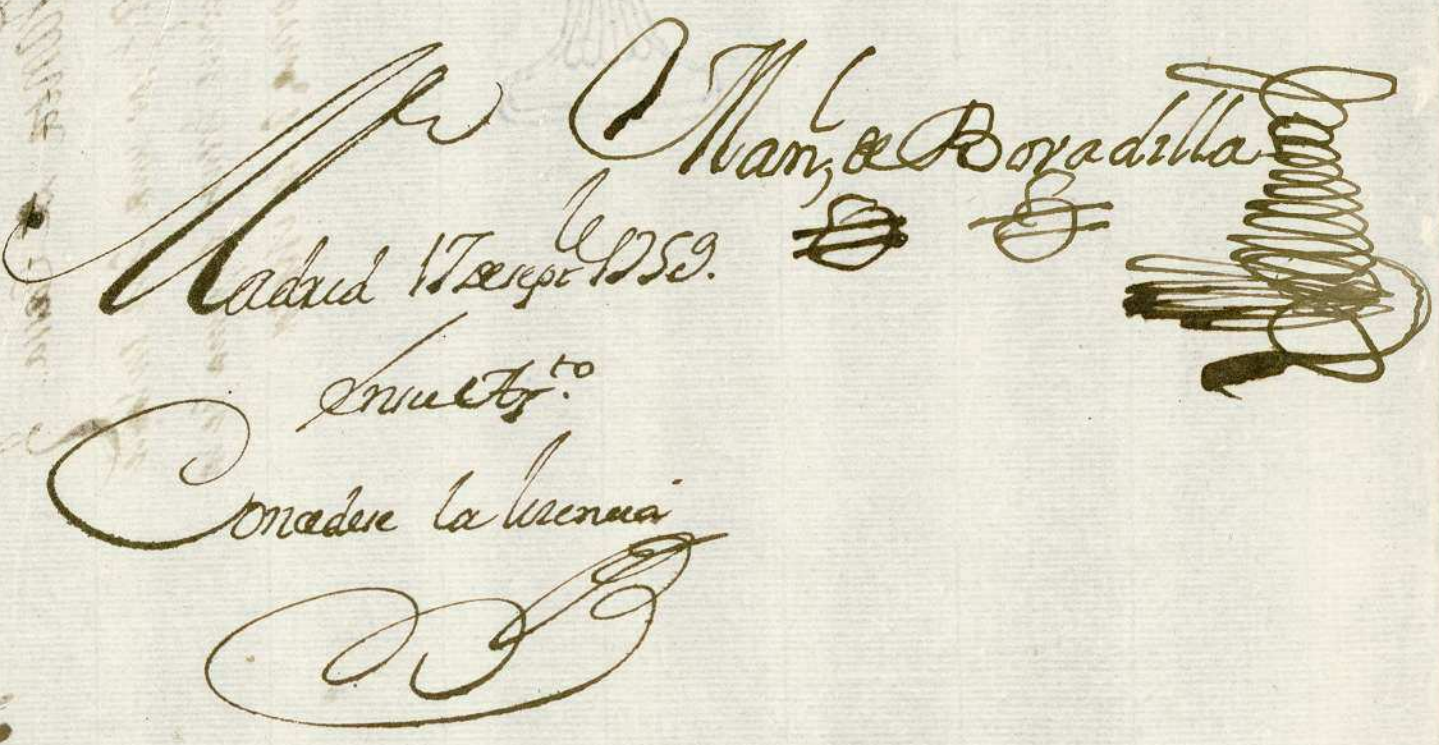 Man.l de Bovadilla
Madrid 17 de sepre 1759.
En su Ayto.
Concedese la licencia